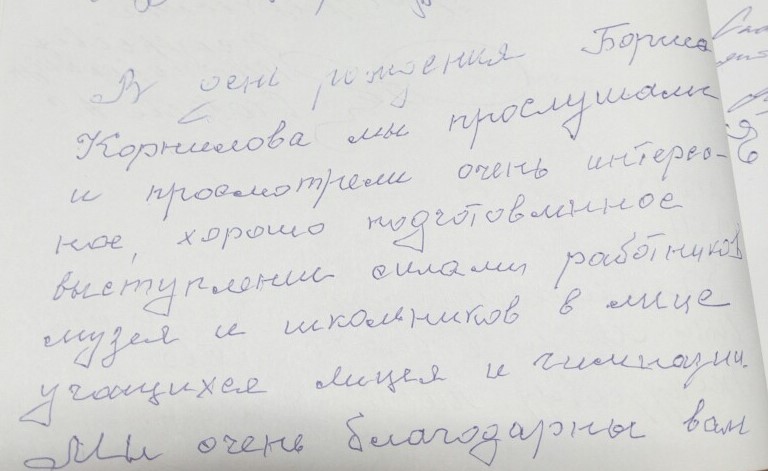 В день рождения Бориса
Корнилова мы прослушали
и просмотрели очень интерес-
ное, хорошо подготовленное
выступление силами работников
музея и школьников в лице
учащихся лицея и гимназии.
Мы очень благодарны вам